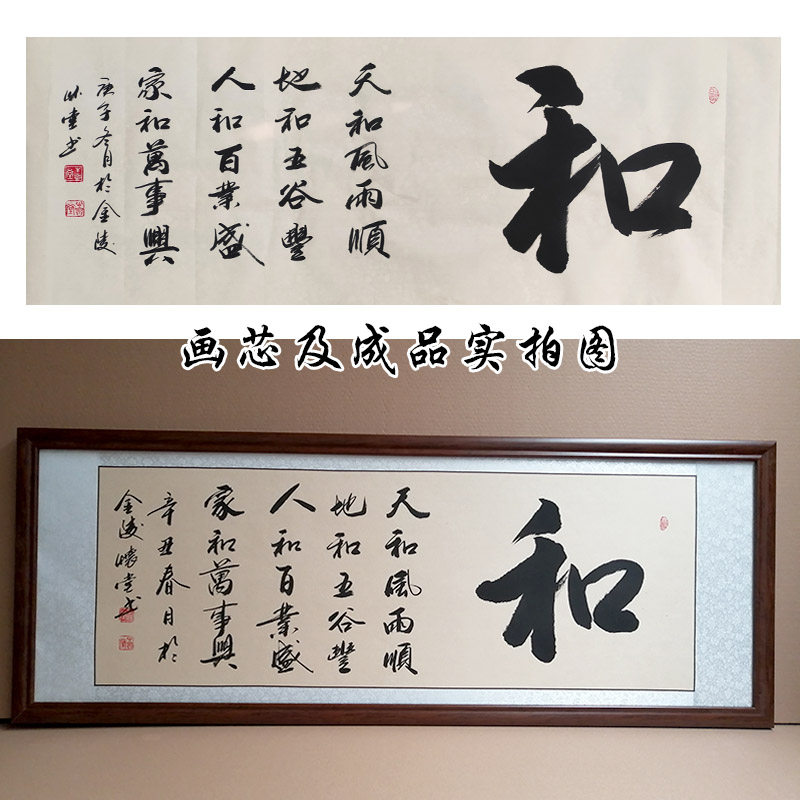 和
天和風雨順
地和五谷豐
人和百業盛
家和萬事興
庚子冬月於金陵
堂书
画芯及成品实拍图
和
天和風雨順
地和五谷豐
人和百業盛
家和萬事興
辛丑春日於
金陵懷堂书